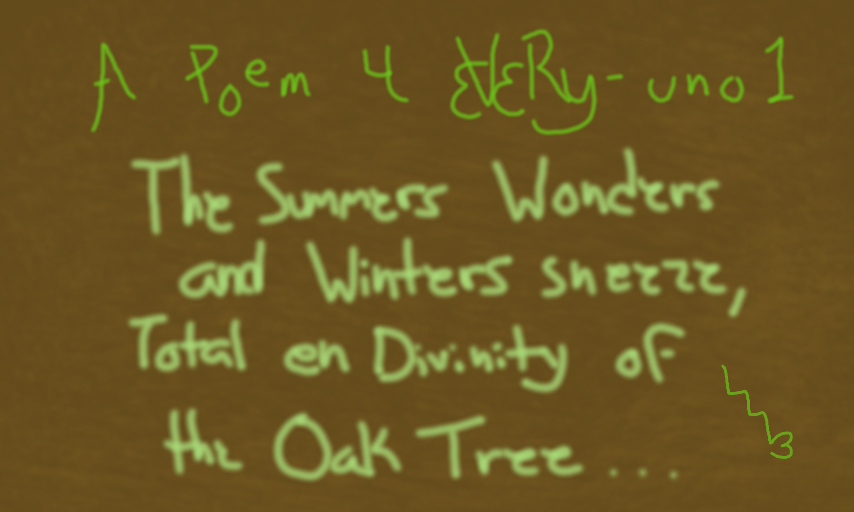 A Poem 4 EVERy-uno1
The Summers Wonders
and Winters sneeze,
Total en Divinity of
the Oak Tree ....
3